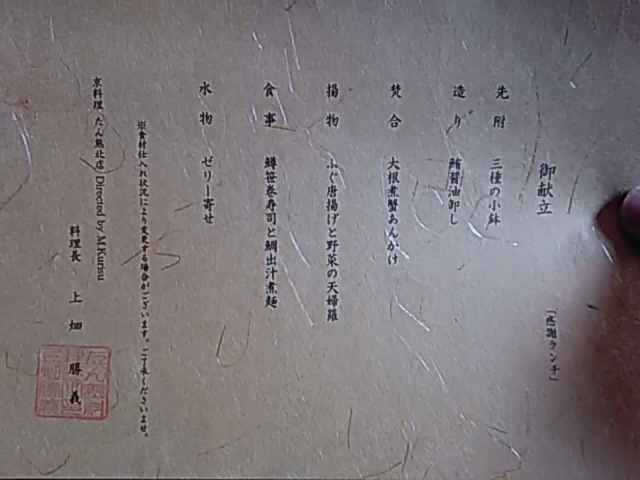 御献立
「感謝ランチ」
先附 三種の小鉢
造り 鮪醤油卸し
焚合 大根煮蟹あんかけ
揚物 ふぐ唐揚げと野菜の天婦羅
食事 鱒笹巻寿司と鯛出汁煮麺
水物 ゼリー寄せ
※食材仕入れ状況により変更する場合がございます。ご了承くださいませ。
京料理〈たん熊北店〉Directed by M.Kurisu
料理長 上畑 勝義